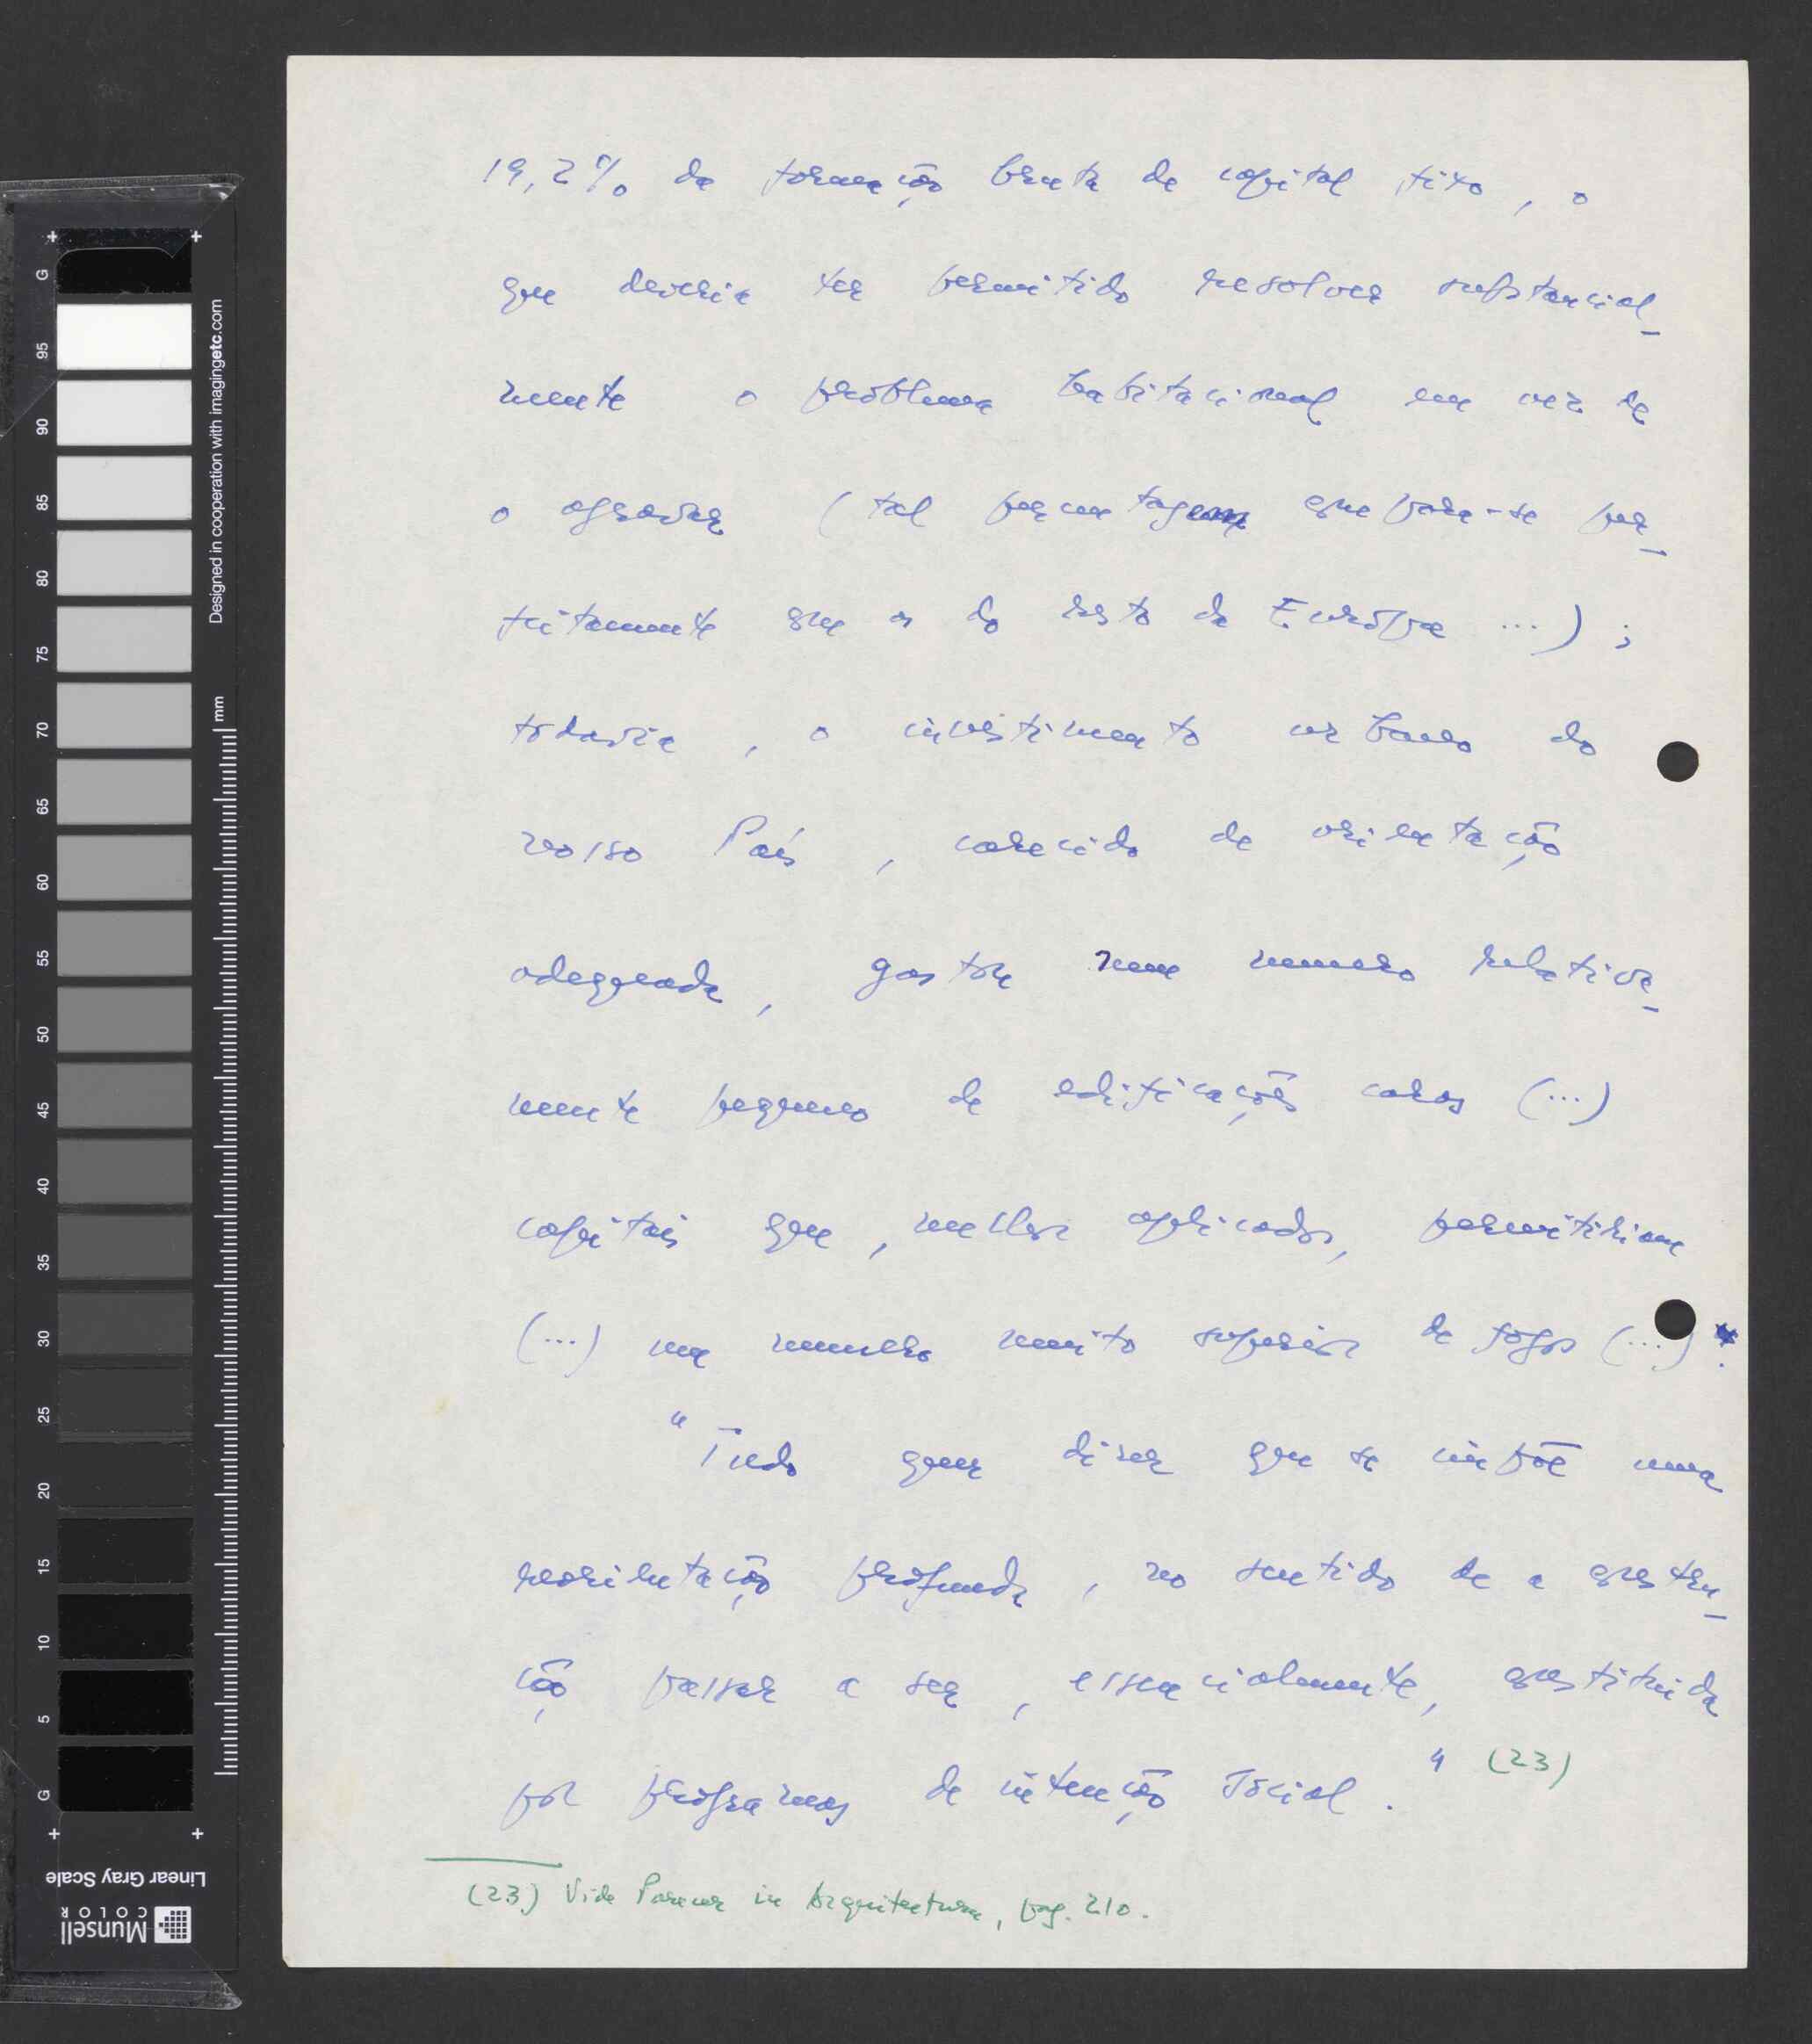 19,2% da formação bruta de capital fixo, o
que deveria ter permitido resolver substancial-
mente o problema habitacional em vez de
o agravar (tal percentagem equipara-se per-
feitamente que as do resto da Europa ...);
todavia, o investimento urbano do
nosso País, carecido de orientação
adequada, gasta num numero relativa-
mente pequeno de edificações caras (...)
capitais que, melhor aplicados, permitiriam
(...) um numero muito superior de fogos (...).
"Tudo quer dizer que se impõe uma
reorientação profunda, no sentido de a
ção passar a ser, essencialmente, constituida
por programas de intenção social." (23)
(23) Vide Parecer in Arquitectura, pag. 210.
G 95 90 85 80 75 70 65 60 55 50 45 40 35 30 25 20 15 10 5 G
mm
Designed in cooperation with imagingetc.com
Munsell COLOR
Linear Gray Scale